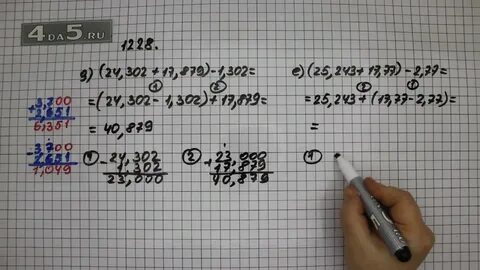 4DA5.RU
1228.
д) (24,302 + 17,879) - 1,302 =
= (24,302 - 1,302) + 17,879 =
= 40,879
① ②
① - 24,302
1,302
23,000
② + 23,000
17,879
40,879
е) (25,243 + 17,77) - 2,77 =
= 25,243 + (17,77 - 2,77) =
=
② ①
①
+ 3,700
2,651
6,351
- 3,700
2,651
1,049